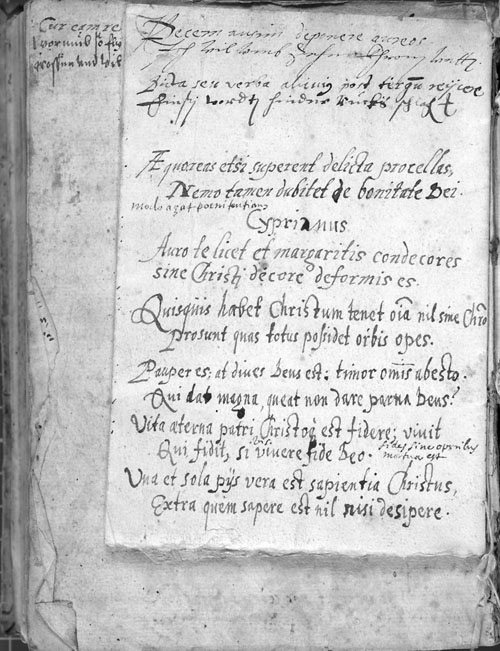 Cur eam re
Decem ausim deponere aureos
Ich wil umb Zehen
seu verba alicuius post tergum reijcere
Æquoreas etsi superent delicta procellas,
Nemo tamen dubitet de bonitate Dei.
modo agat poenitentiam
Cyprianus
Auro te licet et margaritis condecores
sine Christi decore deformis es.
Quisquis habet Christum tenet oīa nil sine Chrō
Prosunt quas totus possidet orbis opes.
Pauper es: at dives Deus est: timor om̄is abesto.
Qui dat magna, queat non dare parva Deus?
Vita æterna patri Christoq́ est fidere: vivit
Qui fidit, si vivere fide Deo. fides sine operibus
mortua est
Una et sola pijs vera est sapientia Christus,
Extra quem sapere est nil nisi desipere.